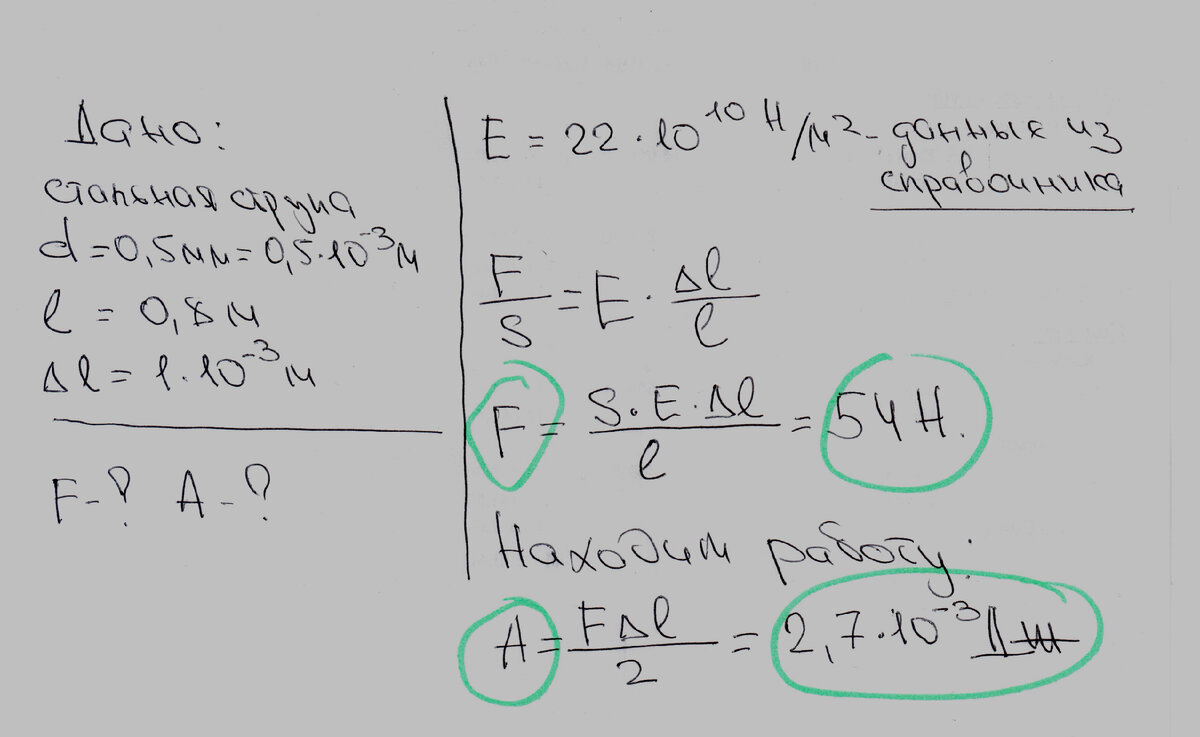 Дано:
стальная струна
d = 0,5мм = 0,5·10⁻³м
l = 0,8 м
Δl = 1·10⁻³ м
F - ? A - ?
E = 22·10¹⁰ Н/м² - данные из
справочника
F/S = E · Δl/l
F = S·E·Δl/l = 54 Н.
Находим работу:
A = FΔl/2 = 2,7·10⁻³ Дж